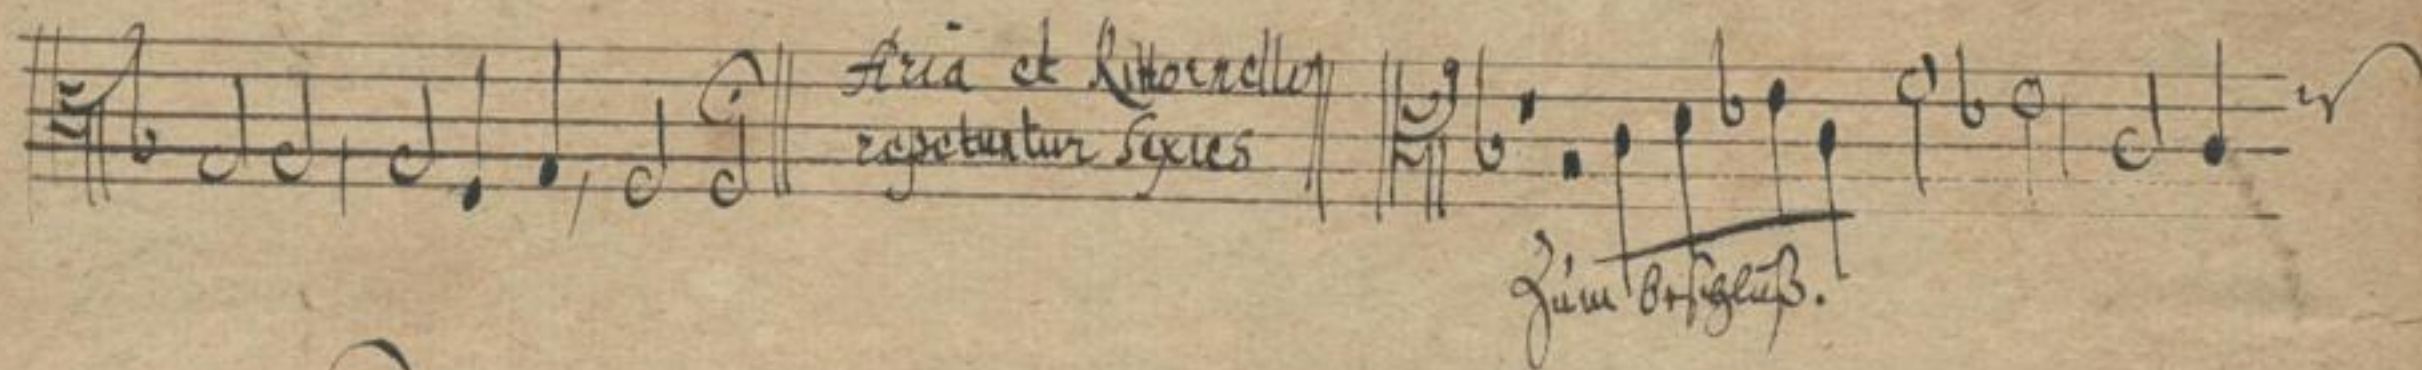 Aria et Rittornello
repetuntur Sexies
Zum beschluß.